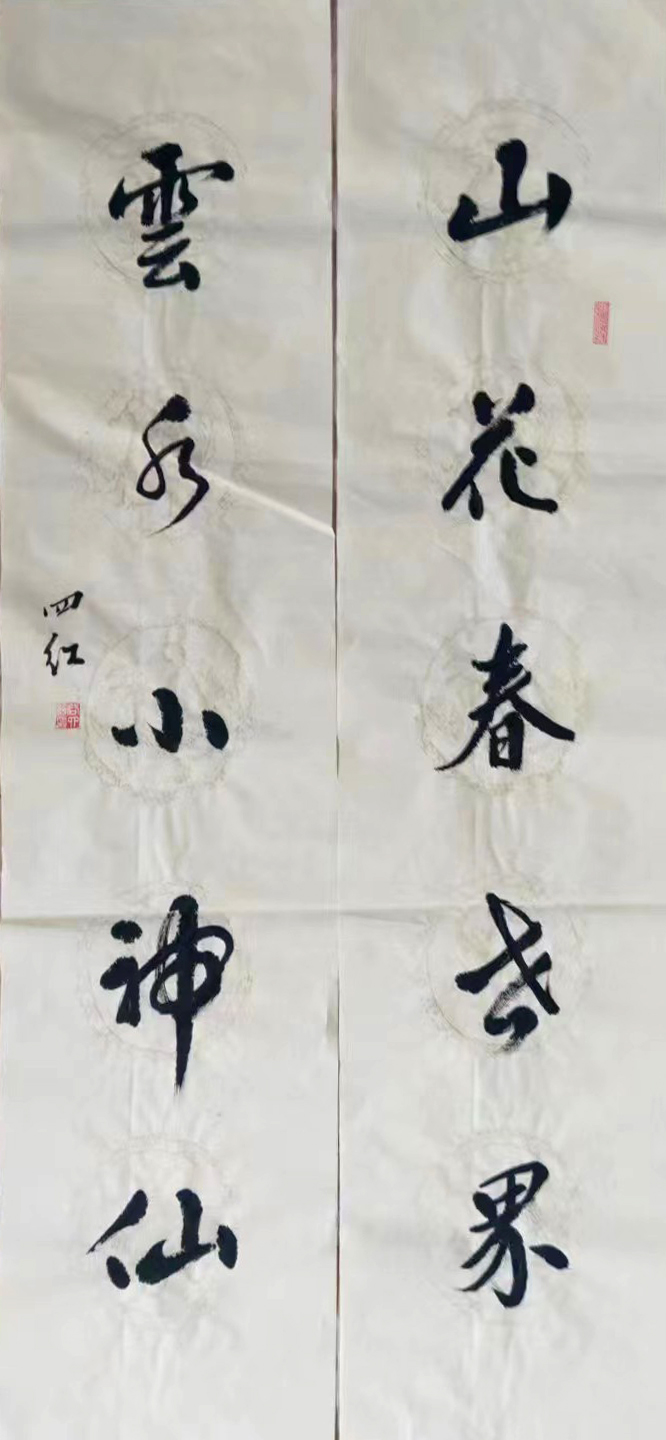 山花春世界
雲水小神仙
四红
癸卯